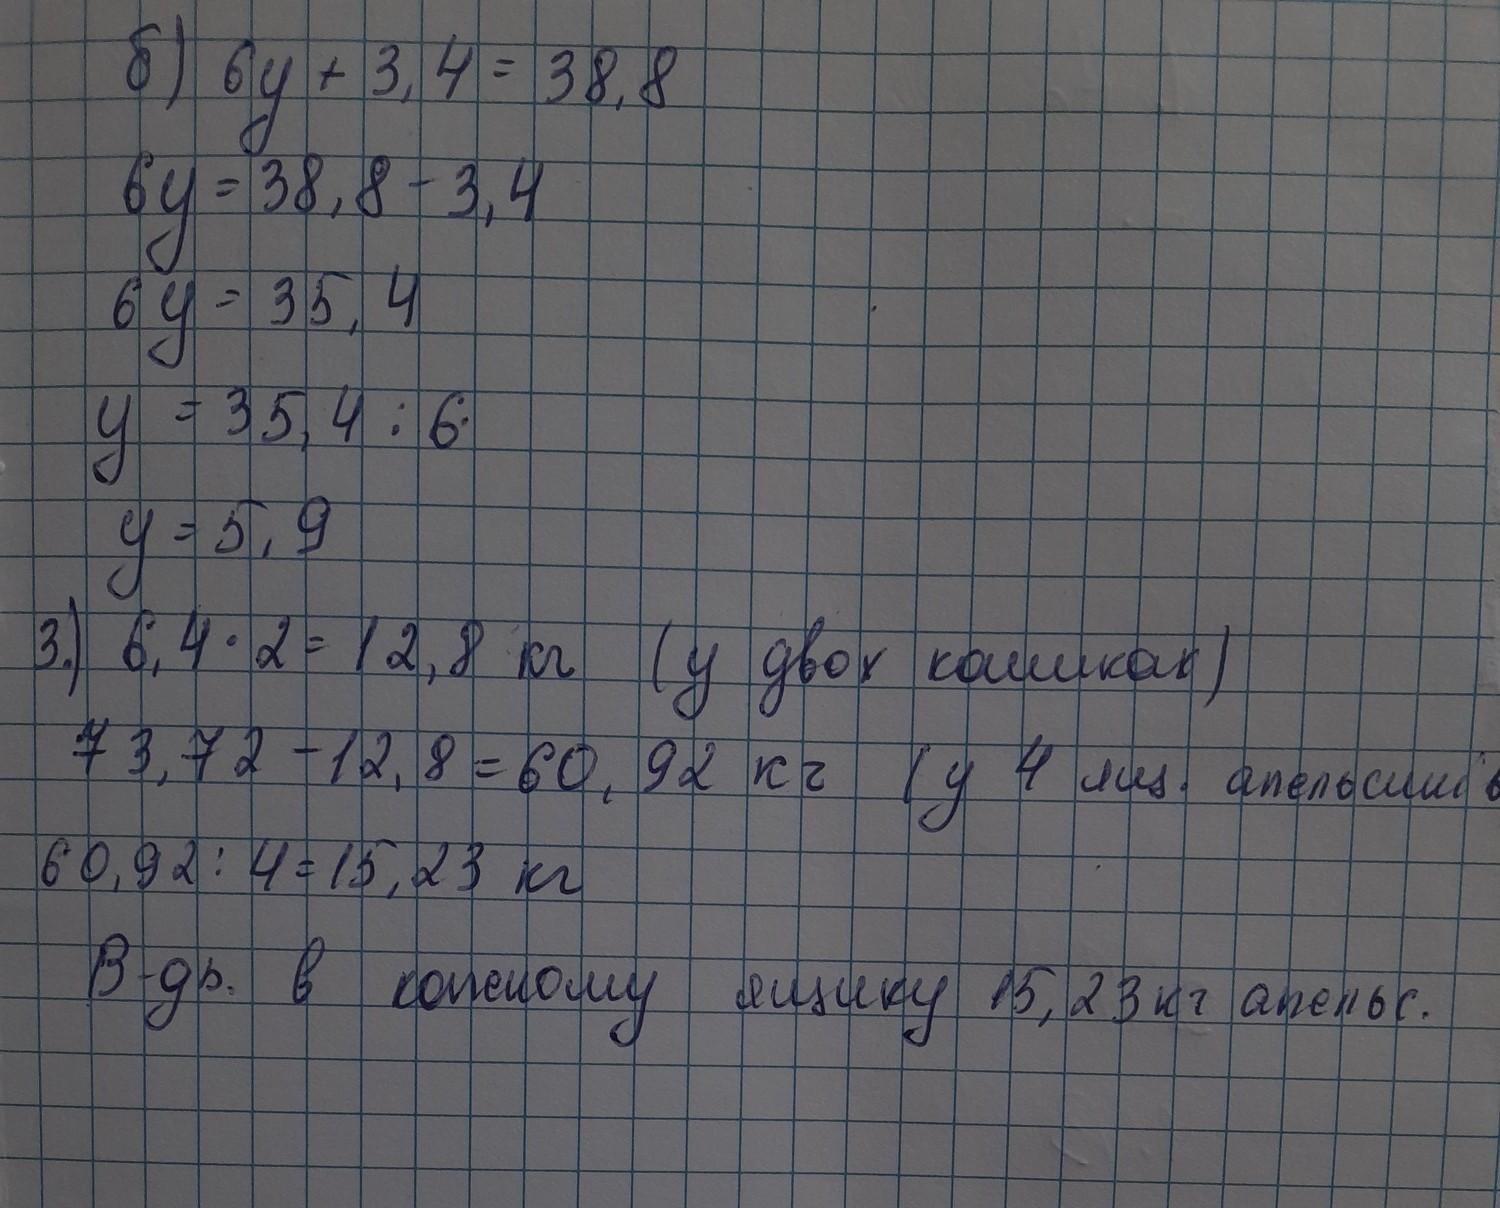 б) 6у + 3,4 = 38,8
6у = 38,8 - 3,4
6у = 35,4
у = 35,4 : 6
у = 5,9
3.) 6,4 · 2 = 12,8 кг (у двох кошиках)
73,72 - 12,8 = 60,92 кг (у 4 ящ. апельсинів
60,92 : 4 = 15,23 кг
В-дь. в кожному ящику 15,23 кг апельс.